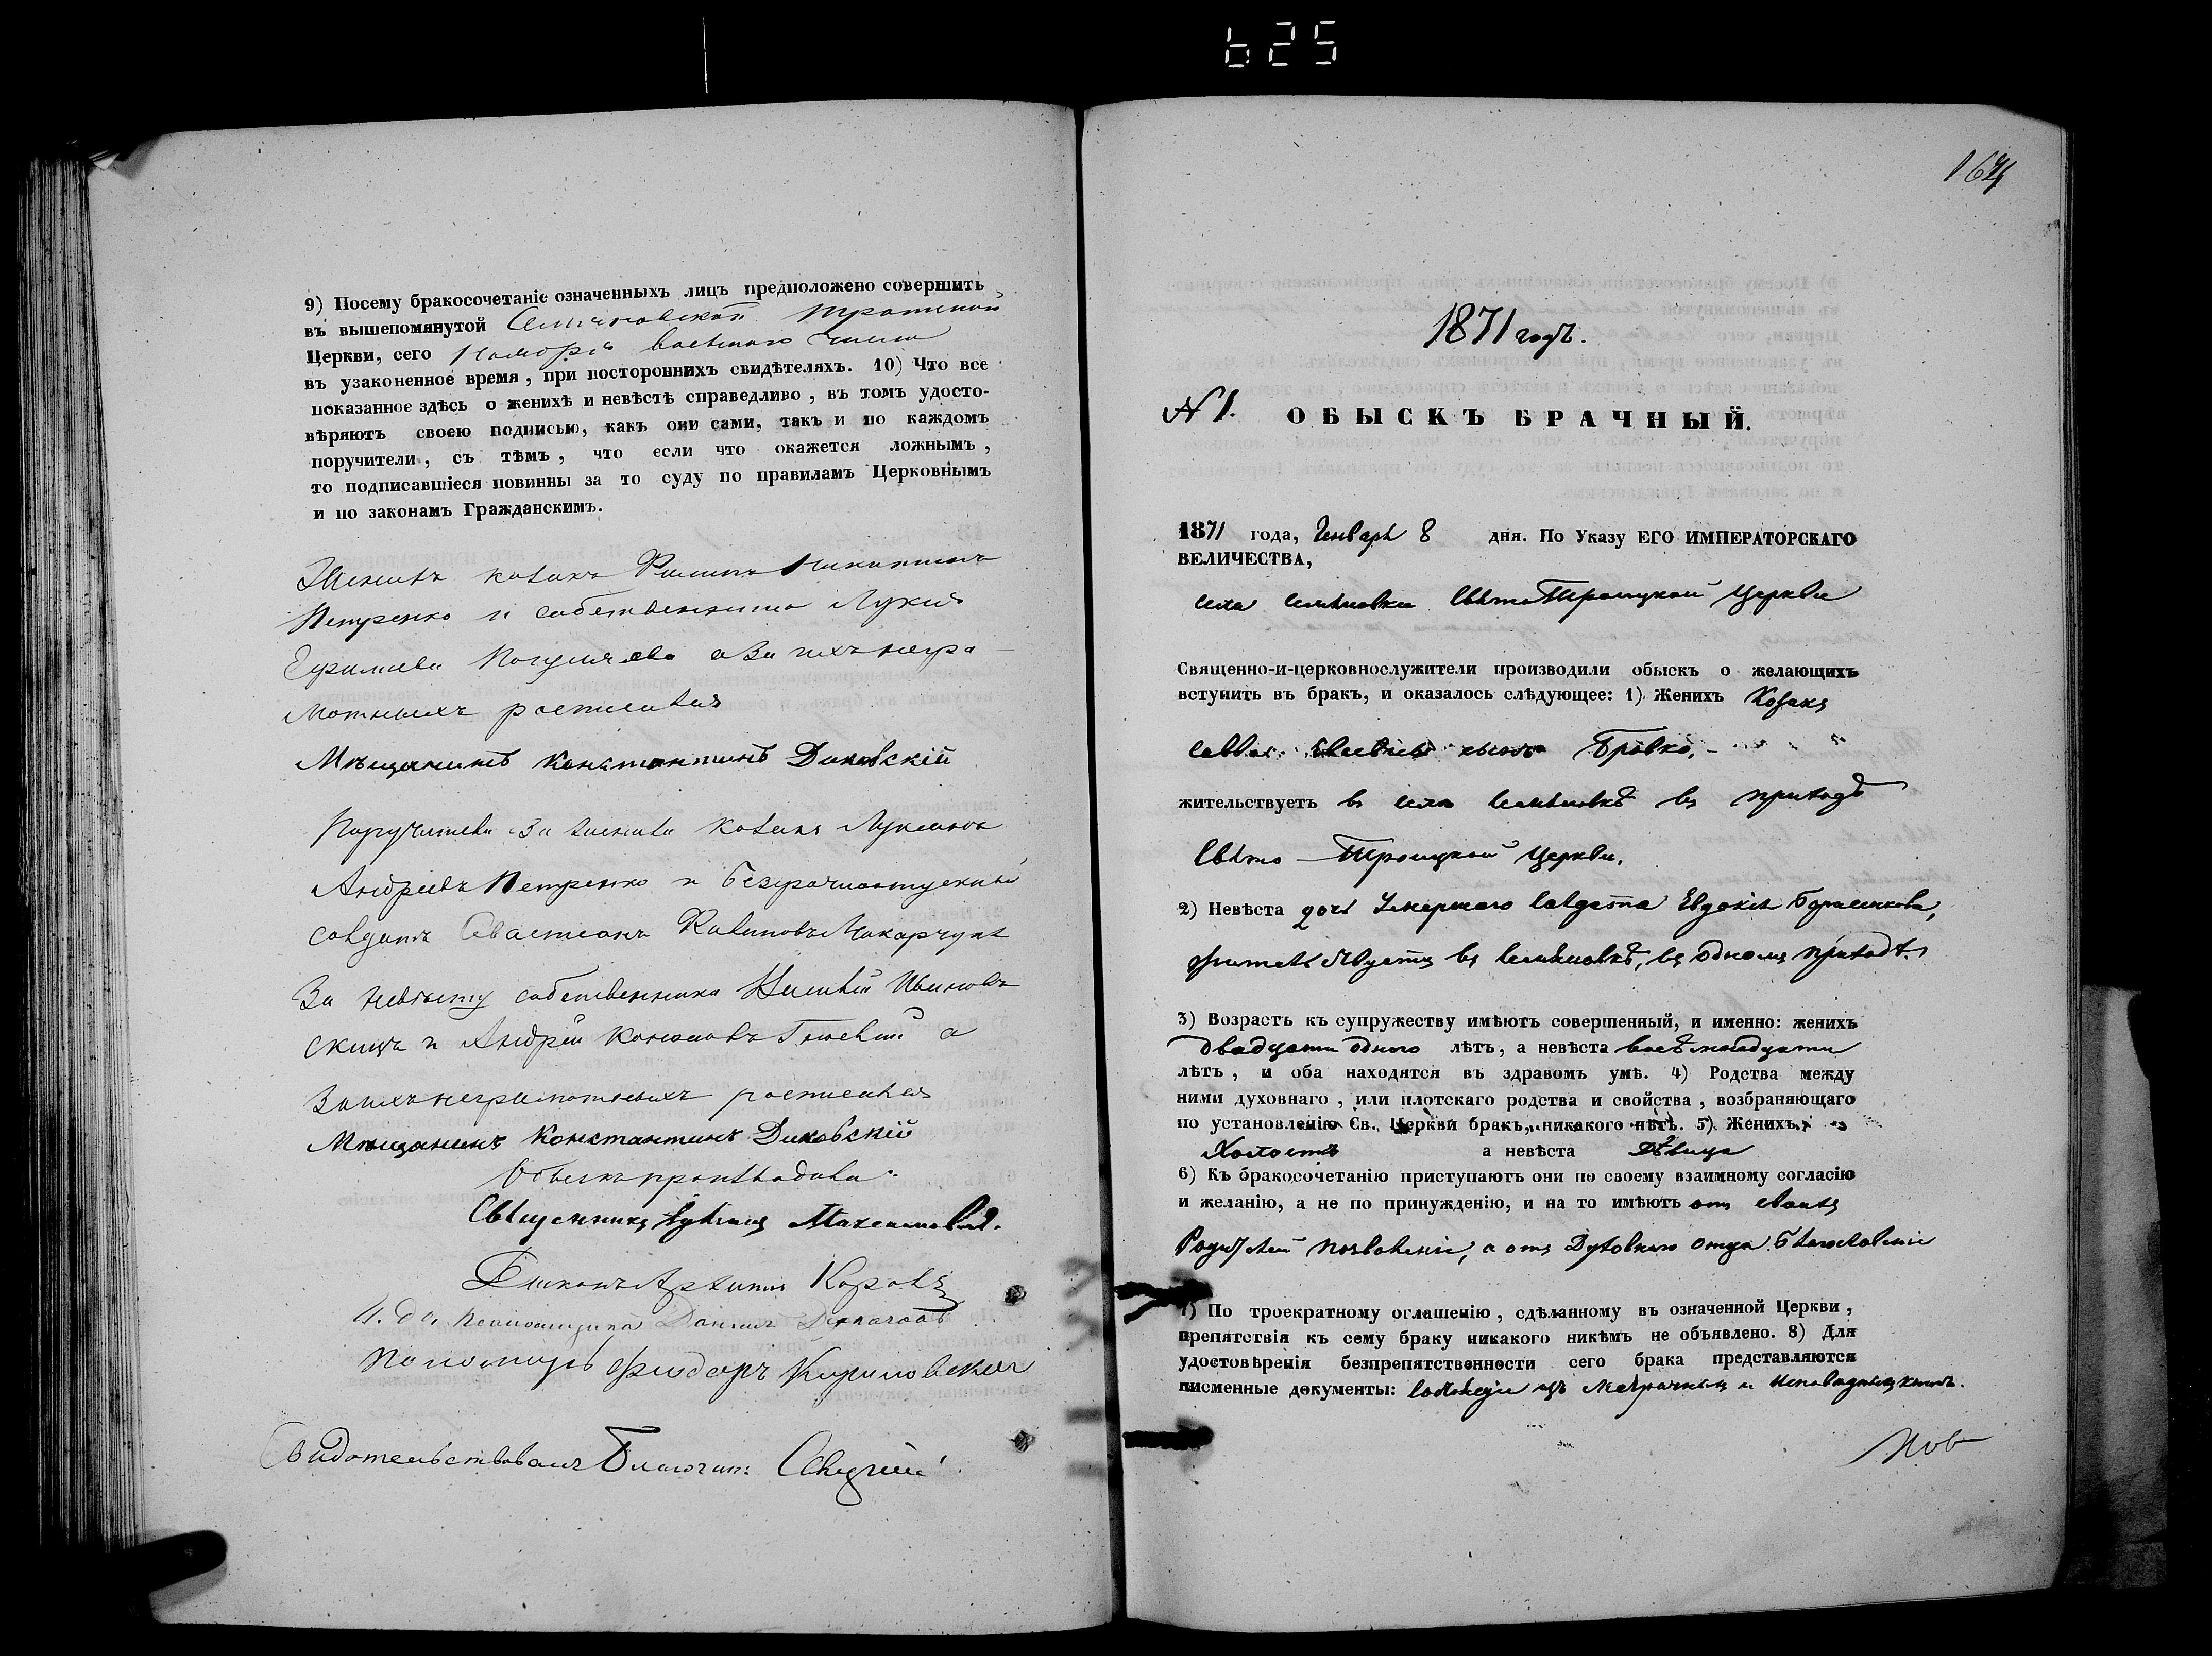 625
9) Посему бракосочетаніе означенныхъ лицъ предположено совершить
въ вышепомянутой Семіновской Троицкой
Церкви, сего Ноября восьмого числа
въ узаконенное время, при постороннихъ свидѣтеляхъ. 10) Что все
показанное здѣсь о женихѣ и невѣстѣ справедливо, въ томъ удосто-
вѣряютъ своею подписью, какъ они сами, такъ и по каждомъ
поручители, съ тѣмъ, что если что окажется ложнымъ,
то подписавшіеся повинны за то суду по правиламъ Церковнымъ
и по законамъ Гражданскимъ.
Женихъ козакъ Филипъ
Петренко и собственника Лукія
Ефимова а за ихъ негра-
мотныхъ росписался
Мѣщанинъ Константинъ Диковскій
Поручители за жениха козакъ Лукіянъ
Андреевъ Петренко и безсрочноотпускный
солдатъ Севастіанъ Макарчукъ
За невѣсту собственники Иванов
скихъ и Андрей а
за ихъ неграмотныхъ росписался
Мѣщанинъ Константинъ Диковскій
Обыскъ производили:
Священникъ Максимовичъ.
Діаконъ Архипъ Король
И. д. Псаломщика Даніилъ
Пономарь Фіодоръ Кириловский
Свидѣтельствовалъ Благочин:
164
1871 годъ.
№ 1. ОБЫСКЪ БРАЧНЫЙ.
1871 года, Генваря 8 дня. По Указу ЕГО ИМПЕРАТОРСКАГО
ВЕЛИЧЕСТВА,
села Семіновки Свято Троицкой Церкви
Священно-и-церковнослужители производили обыскъ о желающихъ
вступить въ бракъ, и оказалось слѣдующее: 1) Женихъ Козакъ
Савва сынъ Бровко,
жительствуетъ въ селѣ Семіновкѣ въ приходѣ
Свято-Троицкой Церкви.
2) Невѣста дочь Умершаго Солдата Евдокія Борисенкова,
жительствуетъ въ Семіновкѣ, въ одномъ приходѣ.
3) Возрастъ къ супружеству имѣютъ совершенный, и именно: женихъ
двадцати одного лѣтъ, а невѣста восемнадцати
лѣтъ, и оба находятся въ здравомъ умѣ. 4) Родства между
ними духовнаго, или плотскаго родства и свойства, возбраняющаго
по установленію Св. Церкви бракъ, никакого нѣтъ. 5) Женихъ
Холостъ а невѣста Дѣвица
6) Къ бракосочетанію приступаютъ они по своему взаимному согласію
и желанію, а не по принужденію, и на то имѣютъ отъ своихъ
Родителей позволеніе, а отъ Духовного отца благословеніе
7) По троекратному оглашенію, сдѣланному въ означенной Церкви,
препятствія къ сему браку никакого никѣмъ не объявлено. 8) Для
удостовѣренія безпрепятственности сего брака представляются
писменные документы: изъ Метрачныхъ и